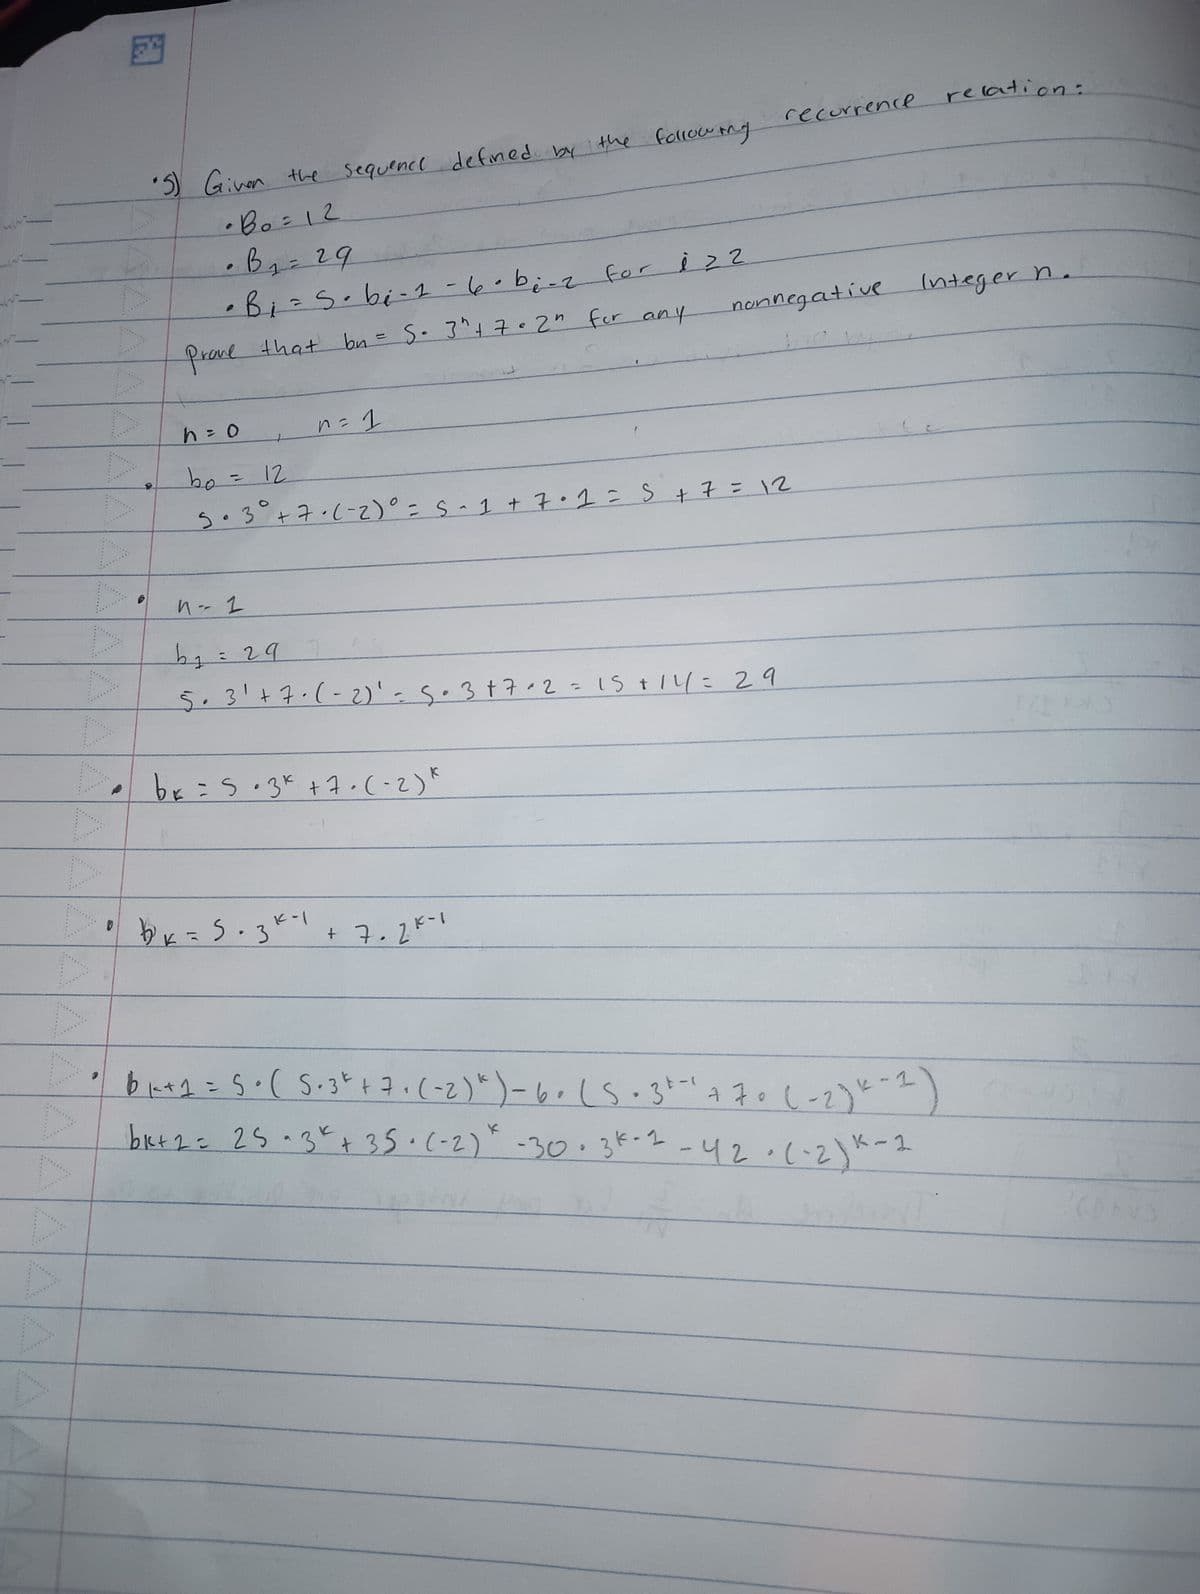 5) Given the sequence defined by the following recurrence relation:
• B₀ = 12
• B₁ = 29
• Bᵢ = 5 • bᵢ-1 - 6 • bᵢ-2 for i ≥ 2
Prove that bn = 5 • 3ⁿ + 7 • 2ⁿ for any nonnegative Integer n.
n = 0 , n = 1
• b₀ = 12
5 • 3⁰ + 7 • (-2)⁰ = 5 • 1 + 7 • 1 = 5 + 7 = 12
• n = 1
b₁ = 29
5 • 3¹ + 7 • (-2)¹ = 5 • 3 + 7 • 2 = 15 + 14 = 29
• bₖ = 5 • 3ᵏ + 7 • (-2)ᵏ
• bₖ = 5 • 3ᵏ⁻¹ + 7 • 2ᵏ⁻¹
• bₖ+1 = 5 • ( 5 • 3ᵏ + 7 • (-2)ᵏ ) - 6 • ( 5 • 3ᵏ⁻¹ + 7 • (-2)ᵏ⁻¹ )
bk+2 = 25 • 3ᵏ + 35 • (-2)ᵏ - 30 • 3ᵏ⁻¹ - 42 • (-2)ᵏ⁻¹